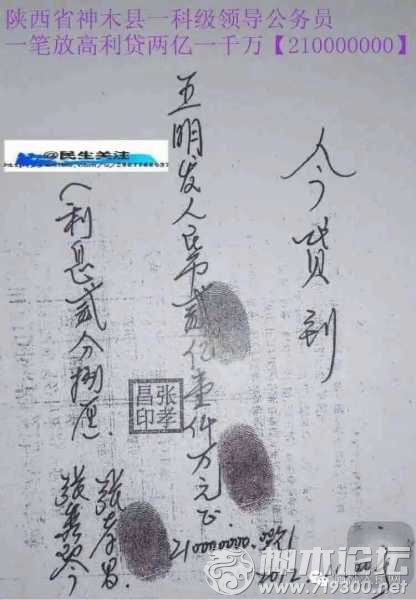 陕西省神木县一科级领导公务员
一笔放高利贷两亿一千万【210000000】
@民生关注
今贷到
王明发人民币贰亿壹仟万元正.
(利息贰分捌厘)
张孝昌印
张孝昌
210000000.00
神木论坛
www.719300.net